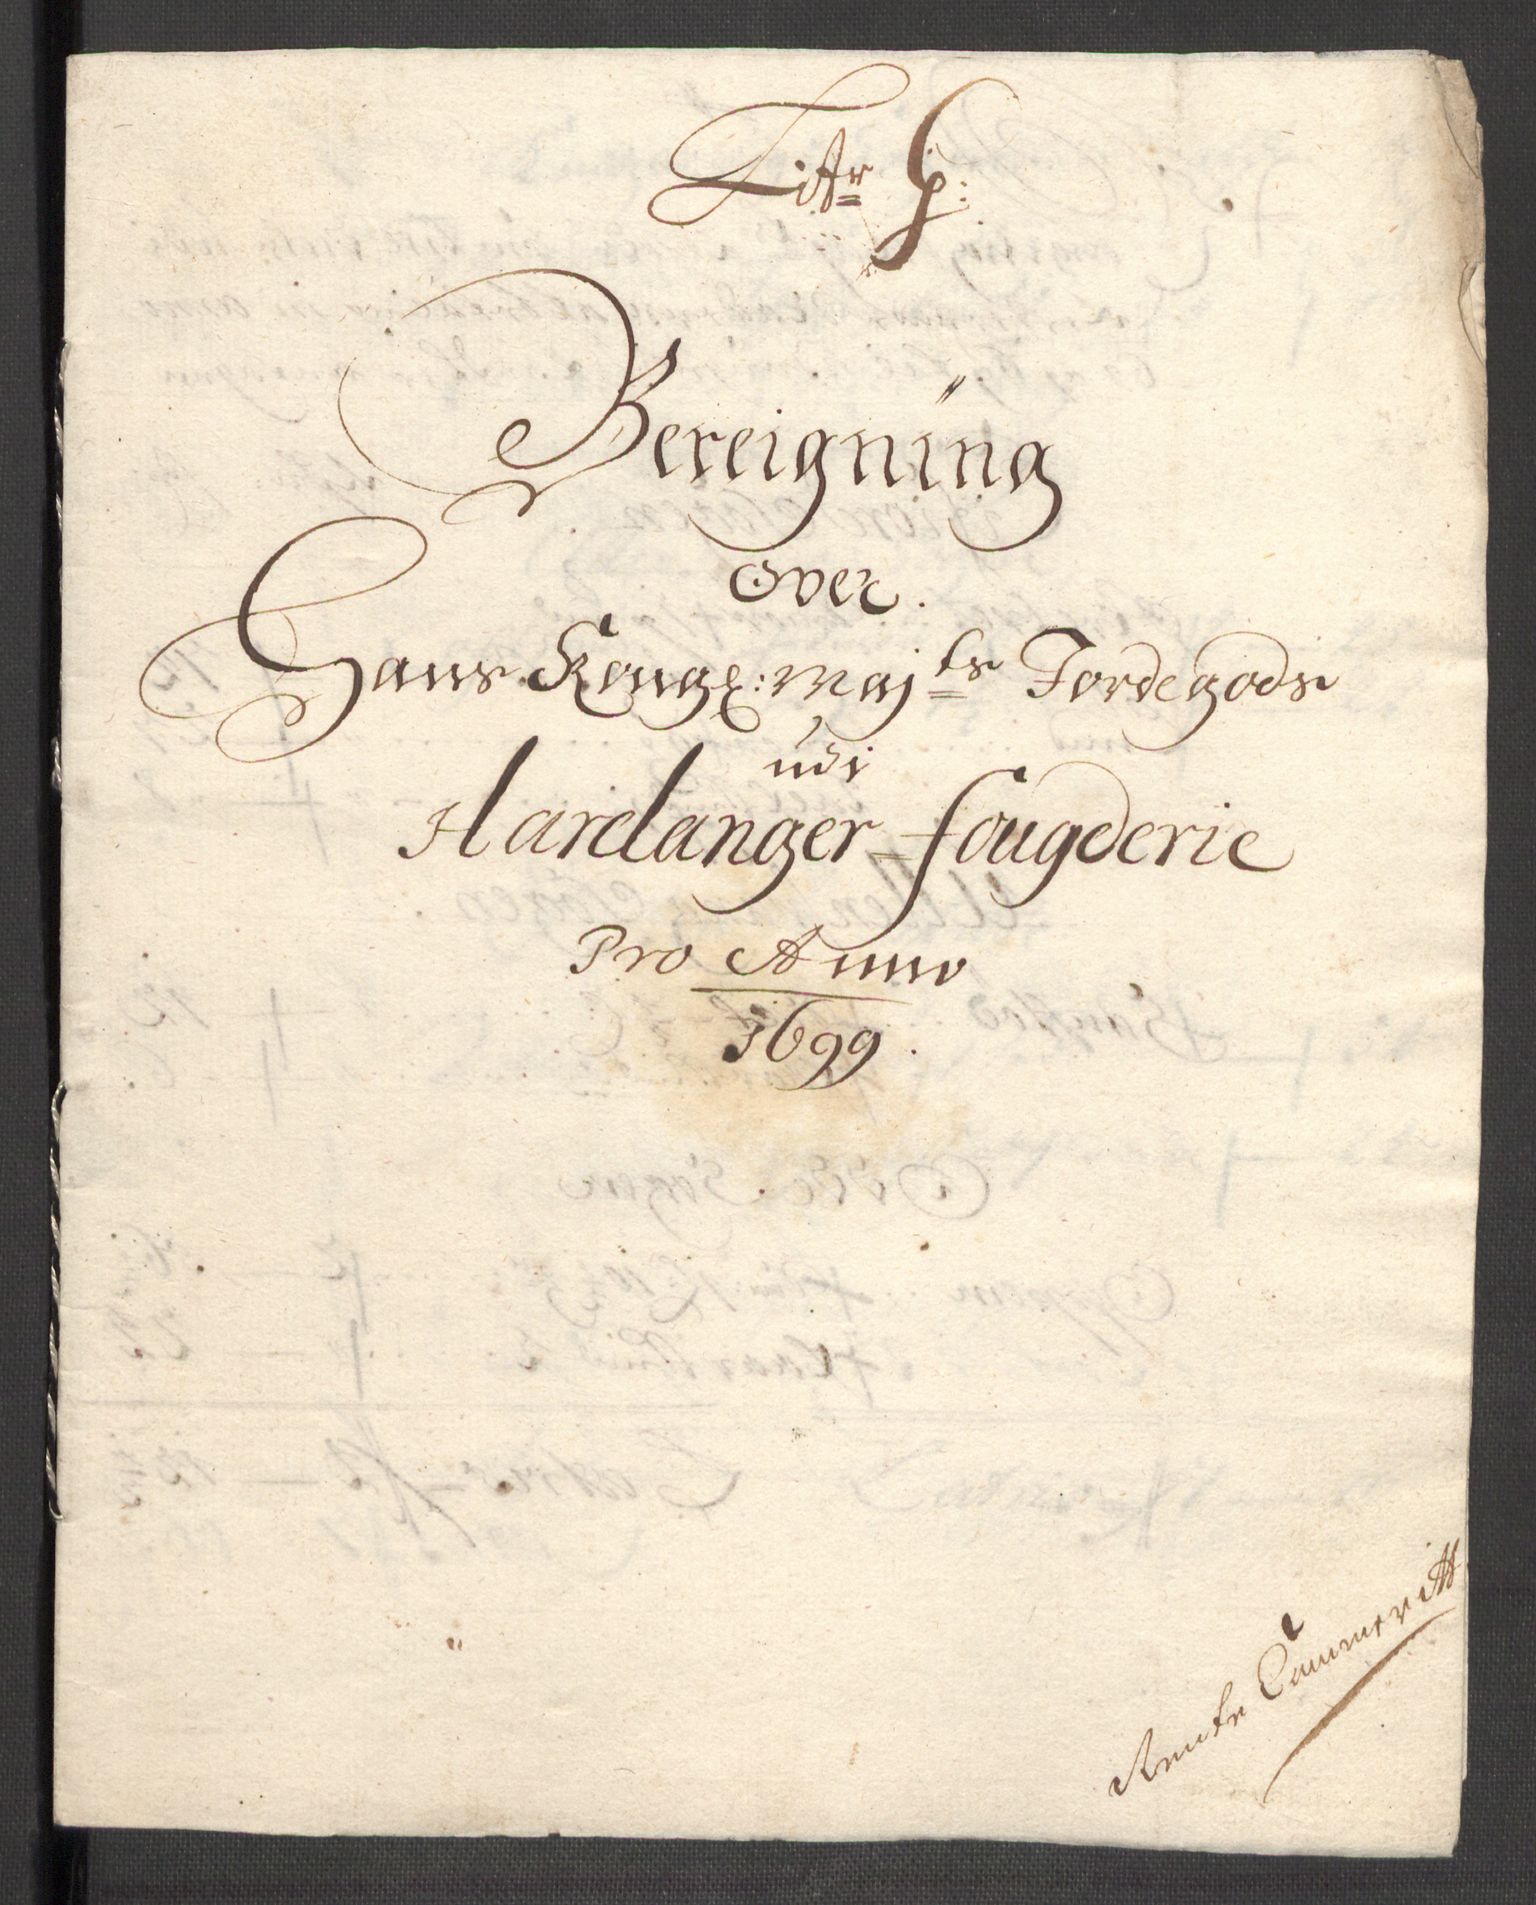 Litr G:
Bereigning
over.
Hans Kongl: Majts Jordegods
udi
Hardanger fougderie
Pro Anno
1699.
Rente Cammeritt